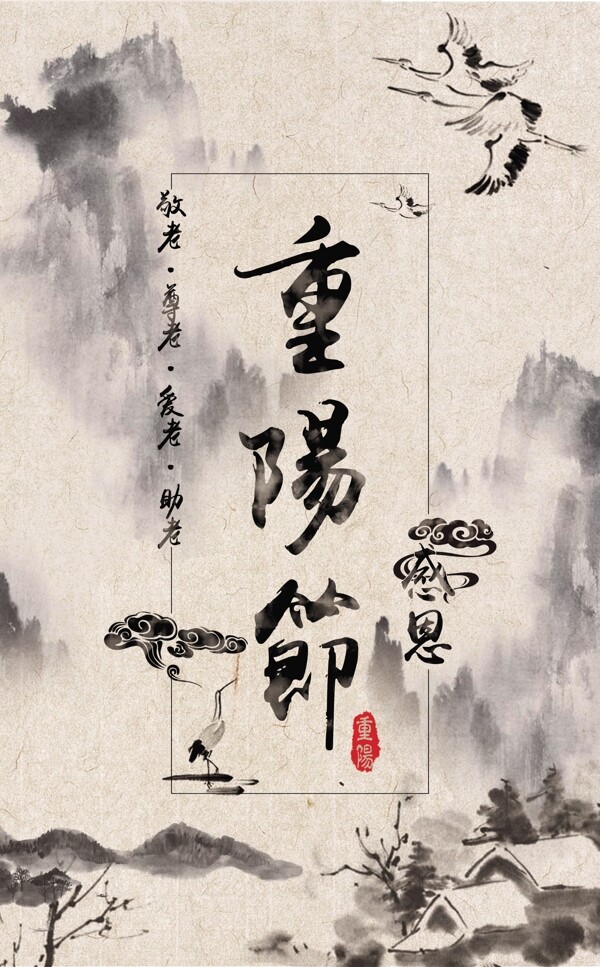 重陽節
敬老·尊老·爱老·助老
感恩
重陽